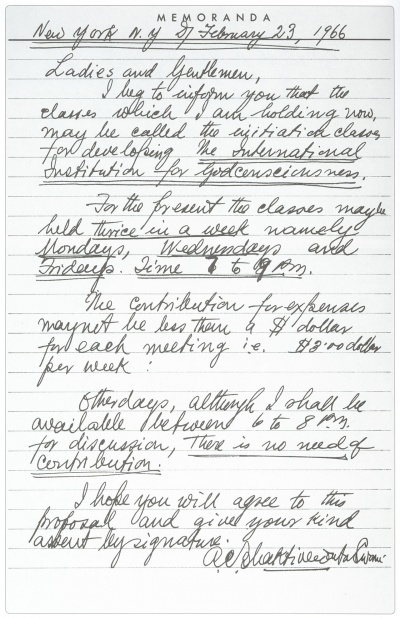 MEMORANDA
New York N.Y D/ February 23, 1966
Ladies and Gentlemen,
I beg to inform you that the
classes which I am holding now,
may be called the initiation classes
for developing The International
Institution for Godconsciousness.
For the present the classes maybe
held thrice in a week namely
Mondays, Wednesdays and
Fridays. Time 7 to 9 P.M.
The contribution for expenses
maynot be less than a $ dollar
for each meeting i.e. $3.00 dollar
per week :
Otherdays, although I shall be
available between 6 to 8 P.M.
for discussion, There is no need of
contribution.
I hope you will agree to this
proposal and give your kind
assent by signature.
A.C. Bhaktivedanta Swami